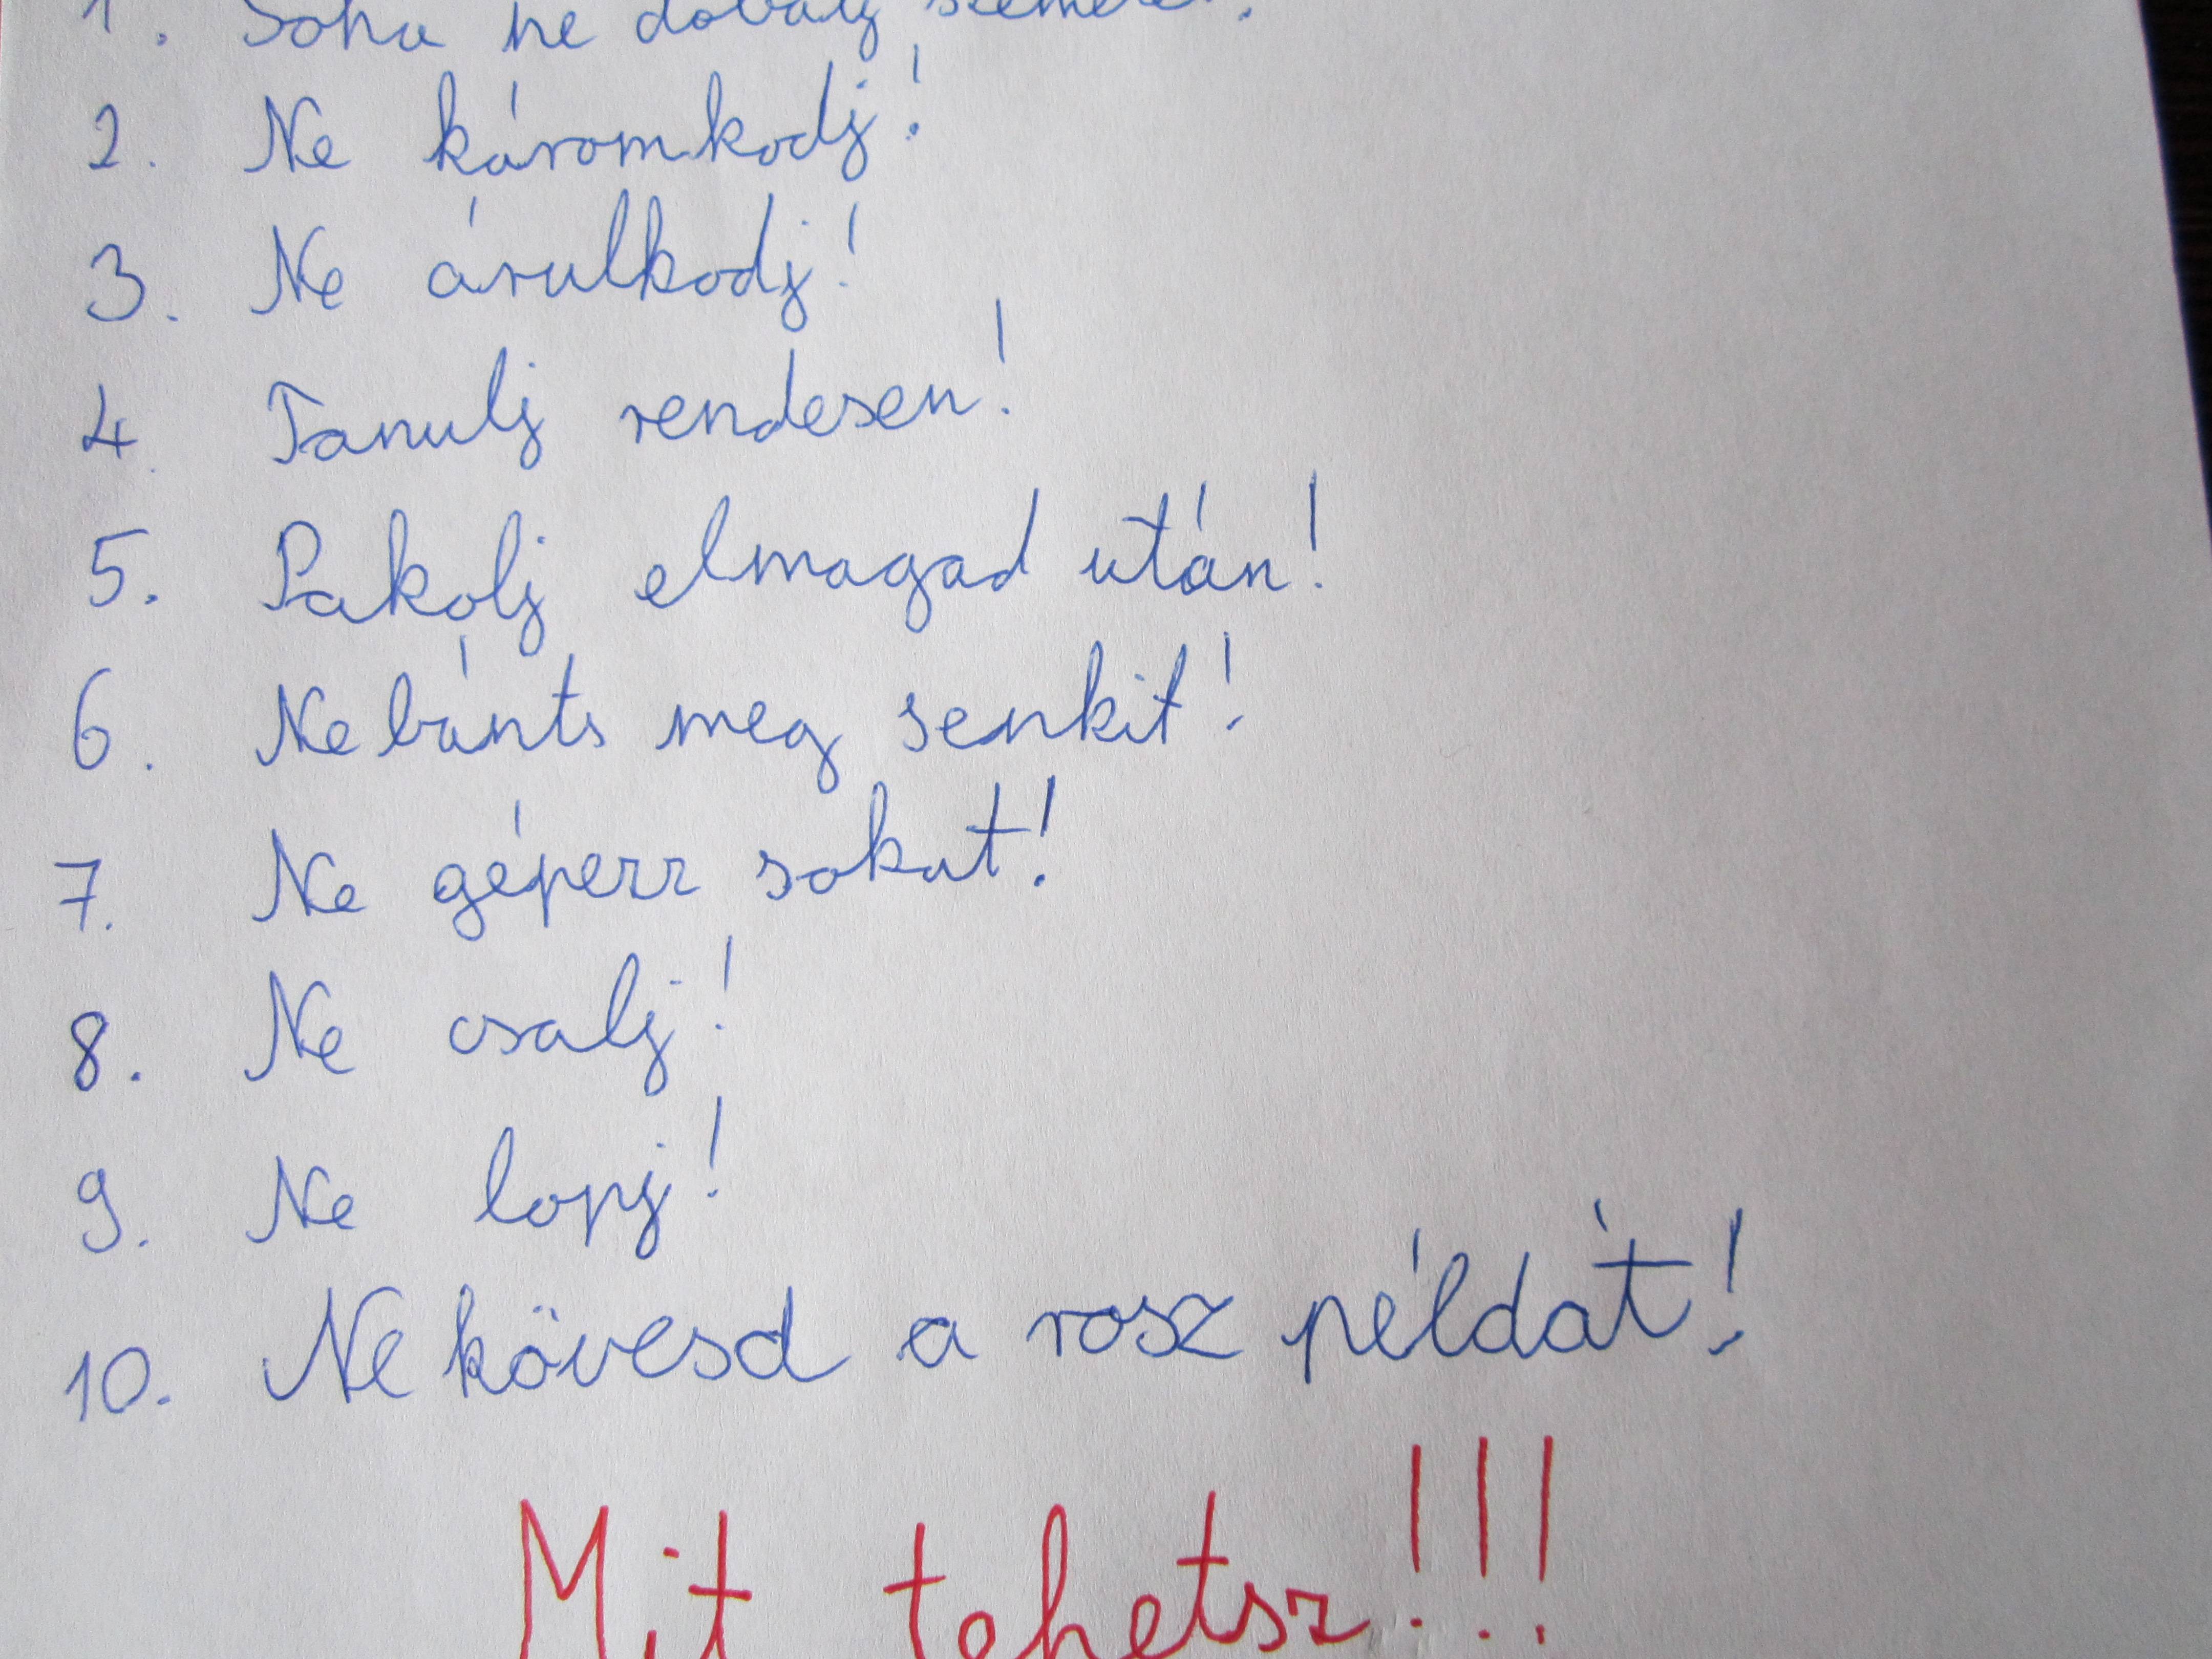 1. Soha ne dobálj szemetet!
2. Ne káromkodj!
3. Ne árulkodj!
4. Tanulj rendesen!
5. Pakolj elmagad után!
6. Ne bánts meg senkit!
7. Ne gépezz sokat!
8. Ne csalj!
9. Ne lopj!
10. Ne kövesd a rosz példát!
Mit tehetsz!!!